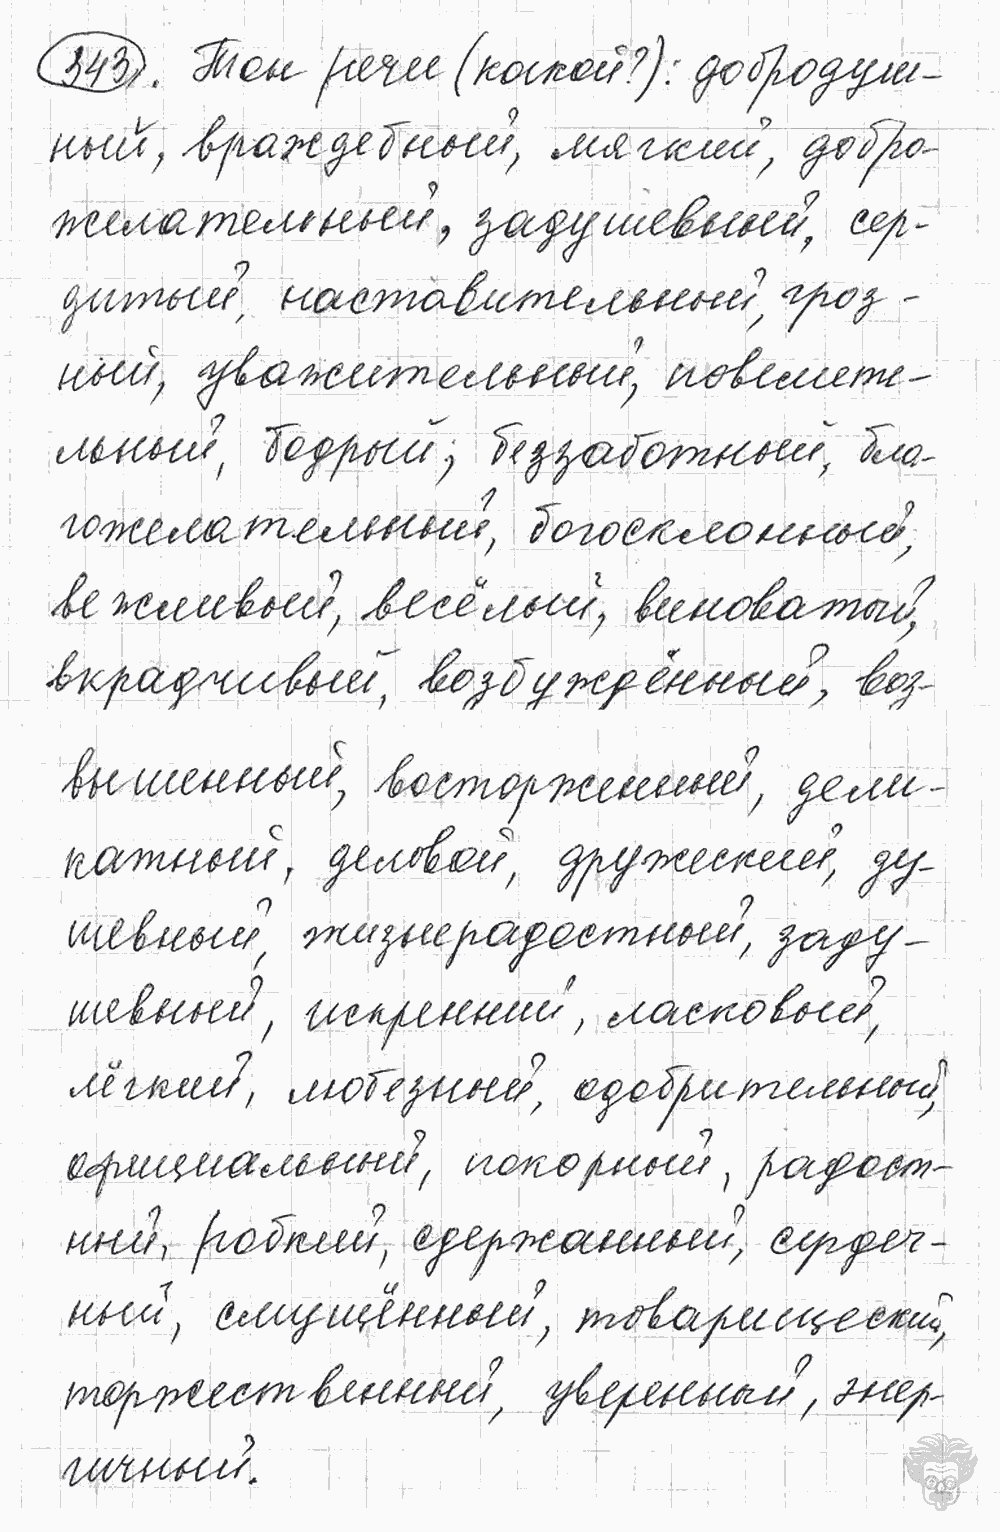 343. Тон речи (какой?): добродуш-
ный, враждебный, мягкий, добро-
желательный, задушевный, сер-
дитый, наставительный, гроз-
ный, уважительный, повелите-
льный, бодрый; беззаботный, бла-
гожелательный, богосклонный,
вежливый, весёлый, виноватый,
вкрадчивый, возбуждённый, воз-
вышенный, восторженный, дели-
катный, деловой, дружеский, ду-
шевный, жизнерадостный, заду-
шевный, искренний, ласковый,
лёгкий, любезный, одобрительный,
официальный, покорный, радост-
ный, робкий, сдержанный, сердеч-
ный, смущённый, товарищеский,
торжественный, уверенный, энер-
гичный.